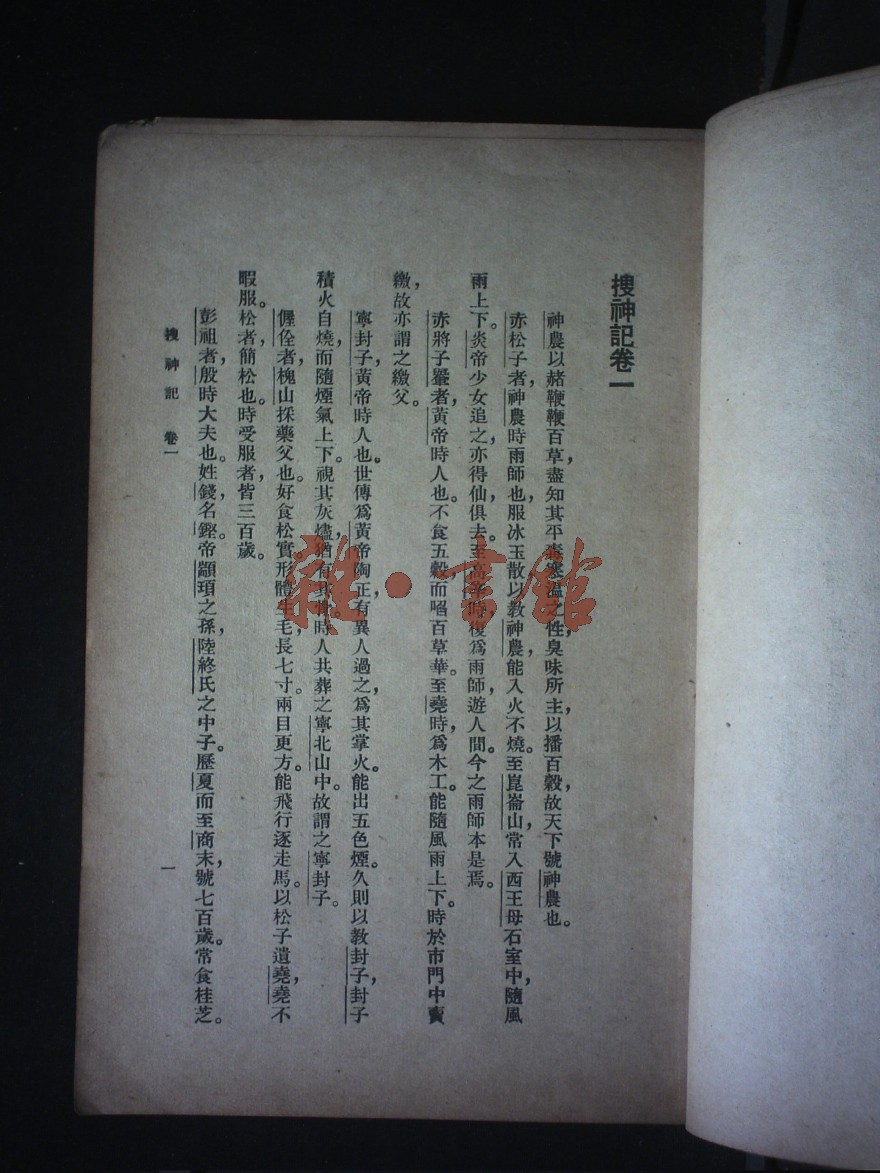 搜神記卷一
神農以赭鞭鞭百草，盡知其平毒寒溫之性，臭味所主，以播百穀，故天下號神農也。
赤松子者，神農時雨師也，服冰玉散，以教神農，能入火不燒。至崑崙山，常入西王母石室中，隨風
雨上下。炎帝少女追之，亦得仙，俱去。至高辛時，復爲雨師，遊人間。今之雨師本是焉。
赤將子轝者，黃帝時人也。不食五穀，而啗百草華。至堯時，爲木工。能隨風雨上下。時於市門中賣
繳，故亦謂之繳父。
寧封子，黃帝時人也。世傳爲黃帝陶正，有異人過之，爲其掌火。能出五色煙。久則以教封子，封子
積火自燒，而隨煙氣上下。視其灰燼，猶有其骨。時人共葬之寧北山中。故謂之寧封子。
偓佺者，槐山採藥父也。好食松實。形體生毛，長七寸。兩目更方。能飛行逐走馬。以松子遺堯，堯不
暇服。松者，簡松也。時受服者，皆三百歲。
彭祖者，殷時大夫也。姓錢，名鏗。帝顓頊之孫，陸終氏之中子。歷夏而至商末，號七百歲。常食桂芝。
搜神記　卷一
一
雜·書館